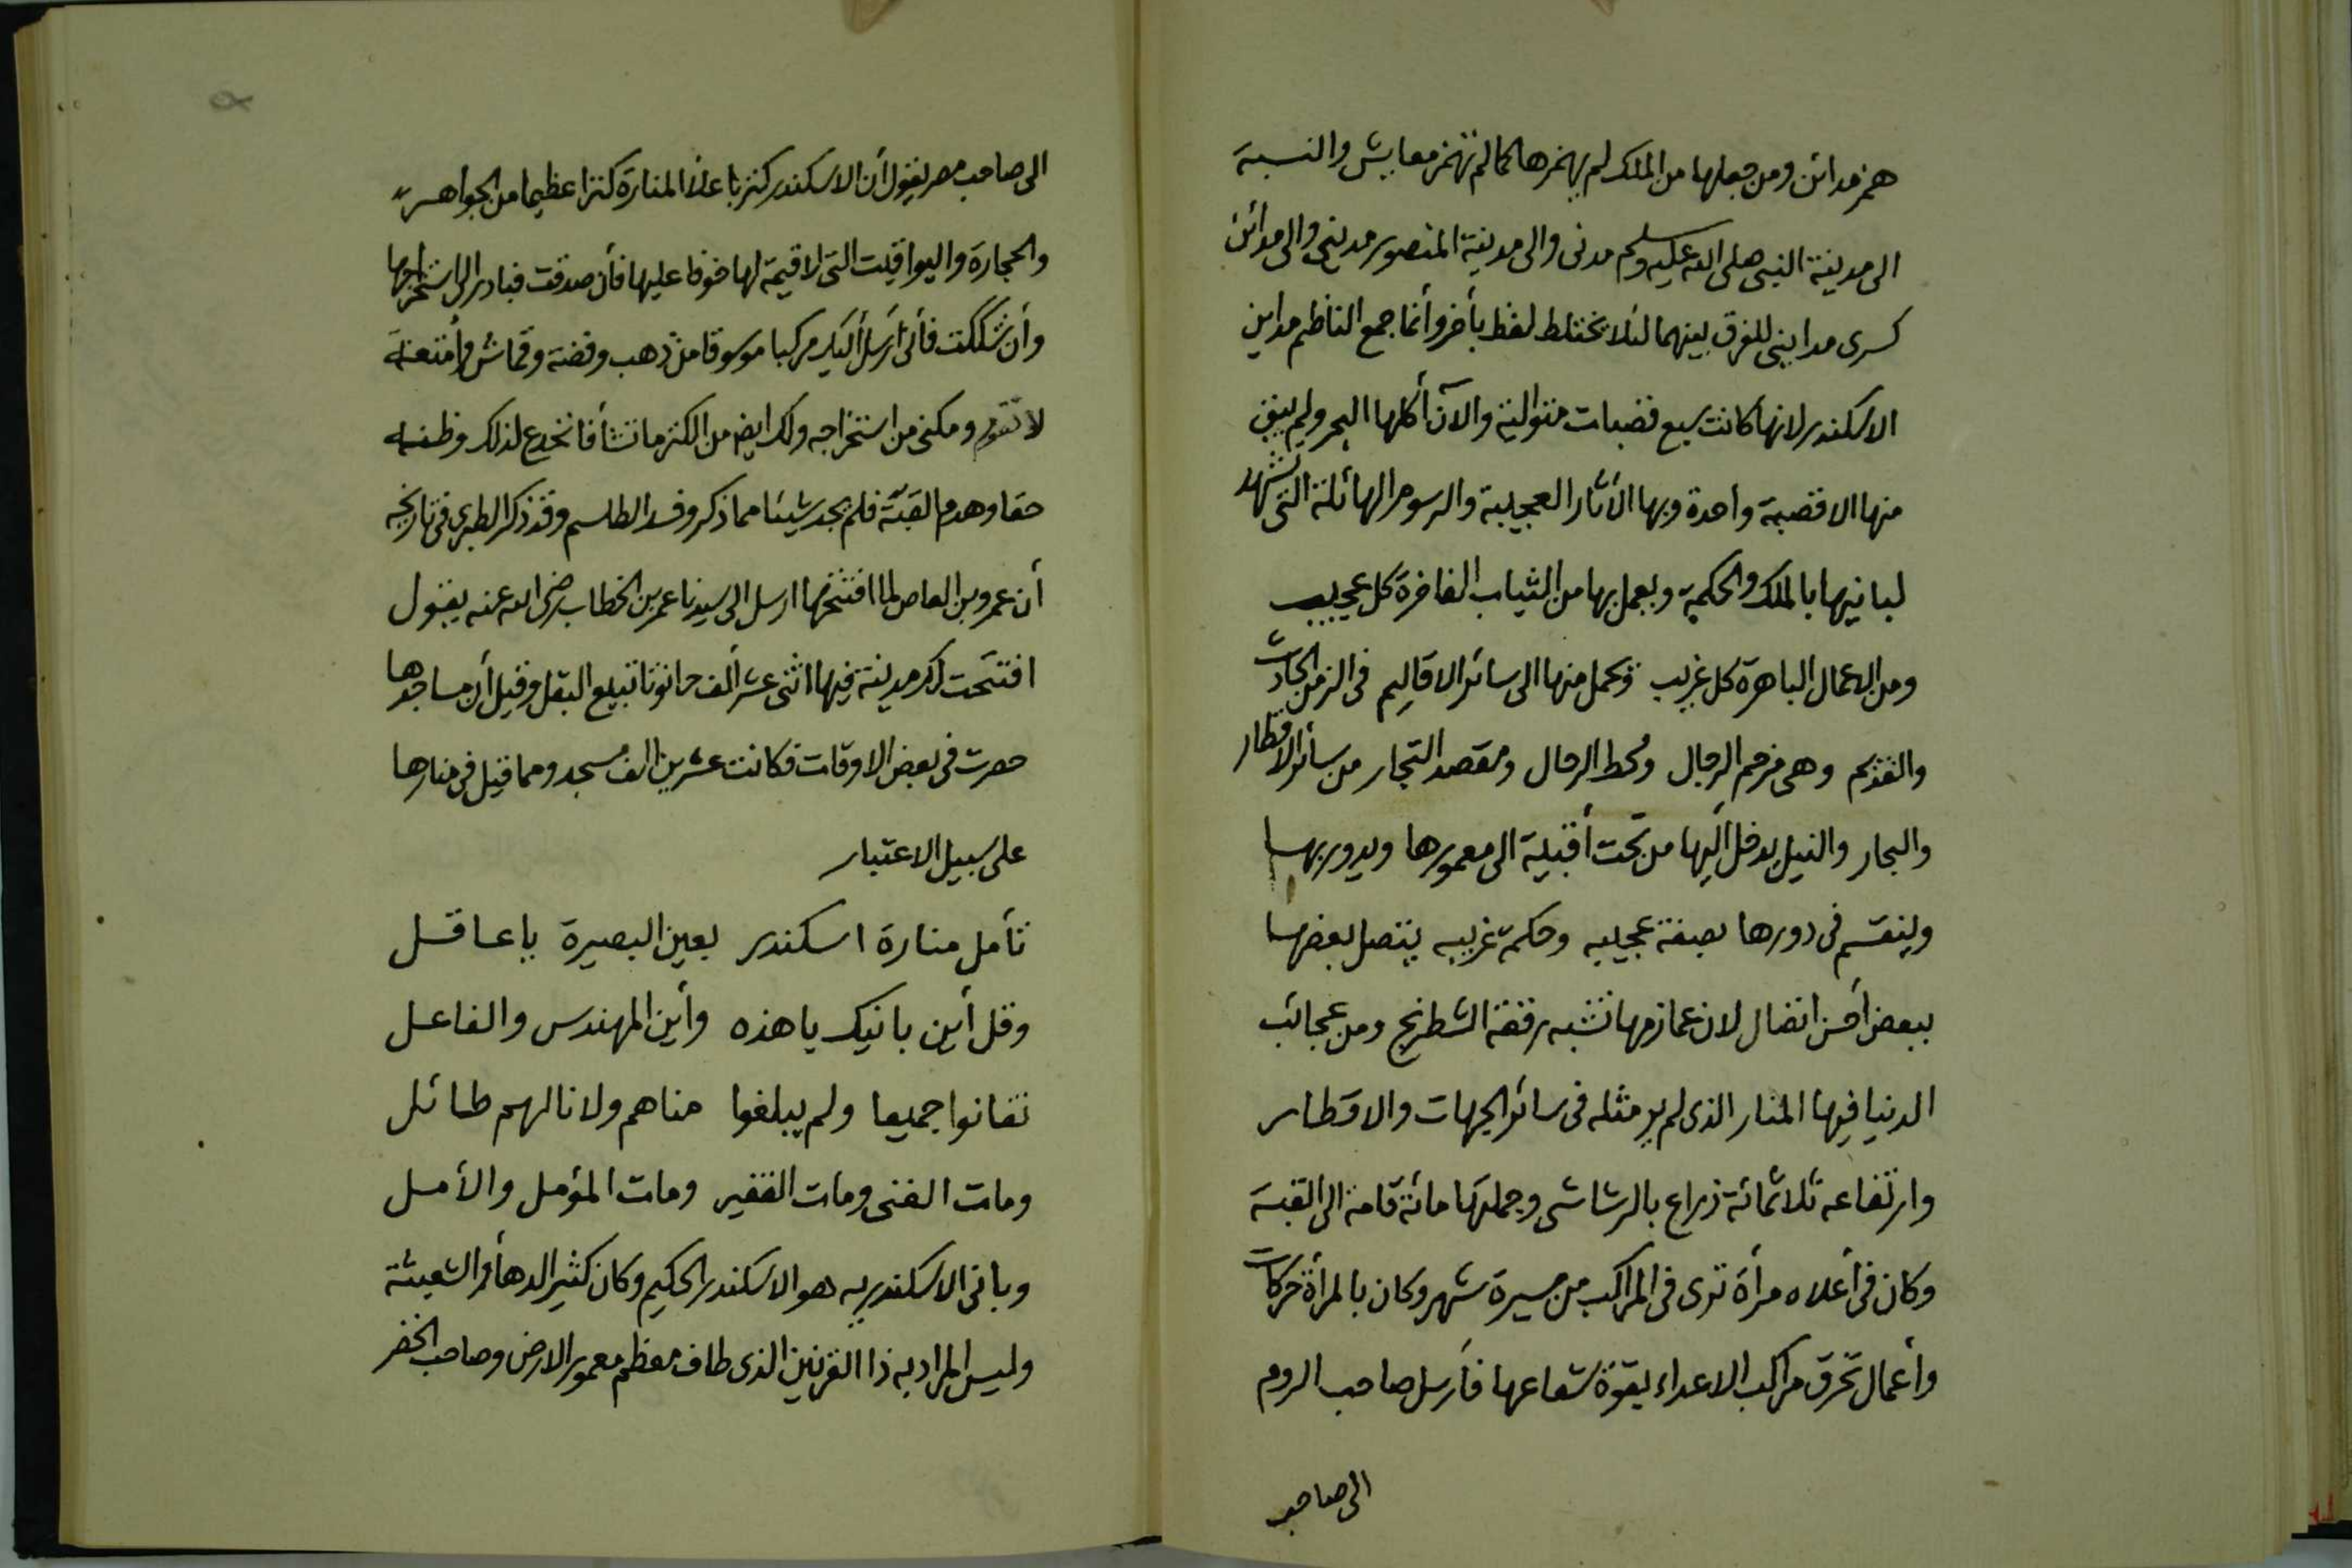 همز مدائن ومن جعلها من الملك لم يهمزها كما لم تهمز معايش والنسبة
الى مدينة النبى صلى الله عليه وسلم مدنى والى مدينة المنصور مدينى والى مدائن
كسرى مداينى للفرق بينهما لئلا يختلط لفظ بأخر وأنما جمع الناظم مداين
الاسكندر لانها كانت سبع قصبات متوالية والآن أكلها البحر ولم يبق
منها الا قصبة واحدة وبها الأثار العجيبة والرسوم الهائلة التى تشهد
لبانيها بالملك والحكمة ويعمل بها من الثياب الفاخرة كل عجيب
ومن الاعمال الباهرة كل غريب وتحمل منها الى سائر الاقاليم فى الزمن الحادث
والقديم وهى مزحم الرجال ومحط الرحال ومقصد التجار من سائر الاقطار
والبحار والنيل يدخل أليها من تحت أقبية الى معمورها ويدور بها
وينقسم فى دورها بصفة عجيبه وحكمة غريبه يتصل بعضها
ببعض أحسن اتصال لان عمازمها تشبه رقفة الشطرنج ومن عجائب
الدنيا فيها المنار الذى لم ير مثله فى سائر الجهات والاقطار
وارتفاعه ثلاثمائة ذراع بالرشاشى وجملتها مائة قامة الى القبة
وكان فى أعلاه مرأة ترى فى المراكب من مسيرة شهر وكان بالمرأة حركات
وأعمال تحرق مراكب الاعداء بقوة شعاعها فأرسل صاحب الروم
الى صاحب
الى صاحب مصر يقول أن الاسكندر كنز باعلا المنارة كنزا عظيما من الجواهر
والحجارة واليواقيت التى لاقيمة لها خوفا عليها فأن صدقت فبادر الى استخراجها
وأن شككت فأنى أرسل أليك مركبا موسوقا من ذهب وفضة وقماش وأمتعة
لا تقوم ومكنى من استخراجه ولك ايضا من الكنز ما تشأ فانخدع لذلك وظنه
حقا وهدم القبة فلم يجد شيئا مما ذكر وفسد الطلسم وقد ذكر الطبرى فى تاريخه
أن عمرو بن العاص لما افتتحها ارسل الى سيدنا عمر بن الخطاب رضى الله عنه يقول
افتتحت لك مدينة فيها اثنى عشر ألف حانوتا تبيع البقل وقيل أن مساجدها
حصرت فى بعض الاوقات فكانت عشرين الف مسجد ومما قيل فى منارها
على سبيل الاعتبار
تأمل منارة اسكندر بعين البصيرة ياعاقل
وقل أين بانيك ياهذه وأين المهندس والفاعل
تفانوا جميعا ولم يبلغوا مناهم ولا نالهم طائل
ومات الغنى ومات الفقير ومات المؤمل والأمل
وبانى الاسكندريه هو الاسكندر الحكيم وكان كثير الدهأ والشعبثة
وليس المراد به ذا القرنين الذى طاف معظم معمور الارض وصاحب الخضر